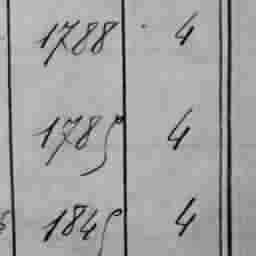 1788 4
1785 4
1845 4